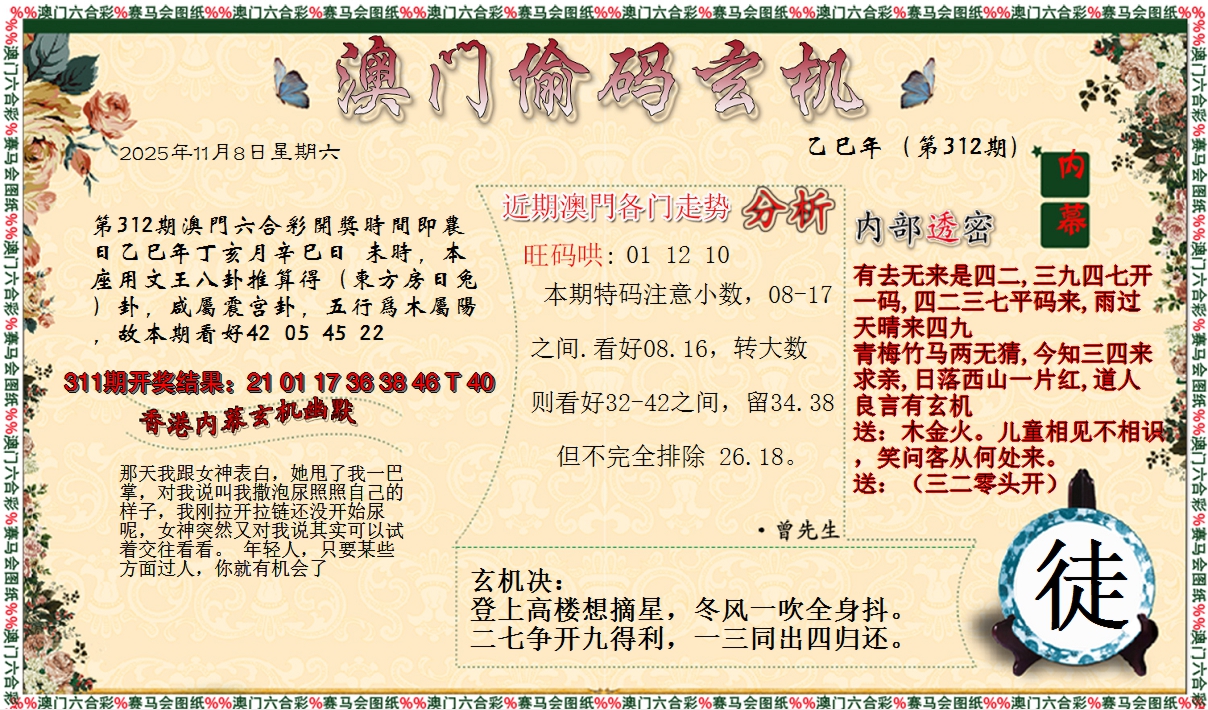 %%澳门六合彩%赛马会图纸%%澳门六合彩%赛马会图纸%%澳门六合彩%赛马会图纸%%澳门六合彩%赛马会图纸%%澳门六合彩%赛马会图纸%%澳门六合彩%赛马会图纸%%
澳门偷码玄机
2025年11月8日星期六
乙巳年（第312期）
内
幕
第312期澳門六合彩開獎時間即農
日乙巳年丁亥月辛巳日 未時，本
座用文王八卦推算得（東方房日兔
）卦，咸屬震宫卦，五行爲木屬陽
，故本期看好42 05 45 22
311期开奖结果：21 01 17 36 38 46 T 40
香港内幕玄机幽默
那天我跟女神表白，她甩了我一巴
掌，对我说叫我撒泡尿照照自己的
样子，我刚拉开拉链还没开始尿
呢，女神突然又对我说其实可以试
着交往看看。 年轻人，只要某些
方面过人，你就有机会了
近期澳門各门走势 分析
旺码哄：01 12 10
本期特码注意小数，08-17
之间.看好08.16，转大数
则看好32-42之间，留34.38
但不完全排除 26.18。
·曾先生
内部透密
有去无来是四二,三九四七开
一码,四二三七平码来,雨过
天晴来四九
青梅竹马两无猜,今知三四来
求亲,日落西山一片红,道人
良言有玄机
送：木金火。儿童相见不相识
，笑问客从何处来。
送：（三二零头开）
玄机决：
登上高楼想摘星，冬风一吹全身抖。
二七争开九得利，一三同出四归还。
徒
%%澳门六合彩%赛马会图纸%%澳门六合彩%赛马会图纸%%澳门六合彩%赛马会图纸%%澳门六合彩%赛马会图纸%%澳门六合彩%赛马会图纸%%澳门六合彩%赛马会图纸%%